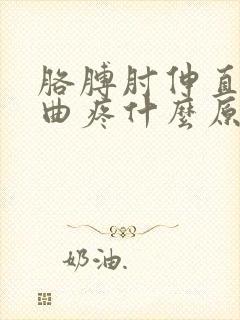 胳膊肘伸直
曲疼什麼原
奶油.